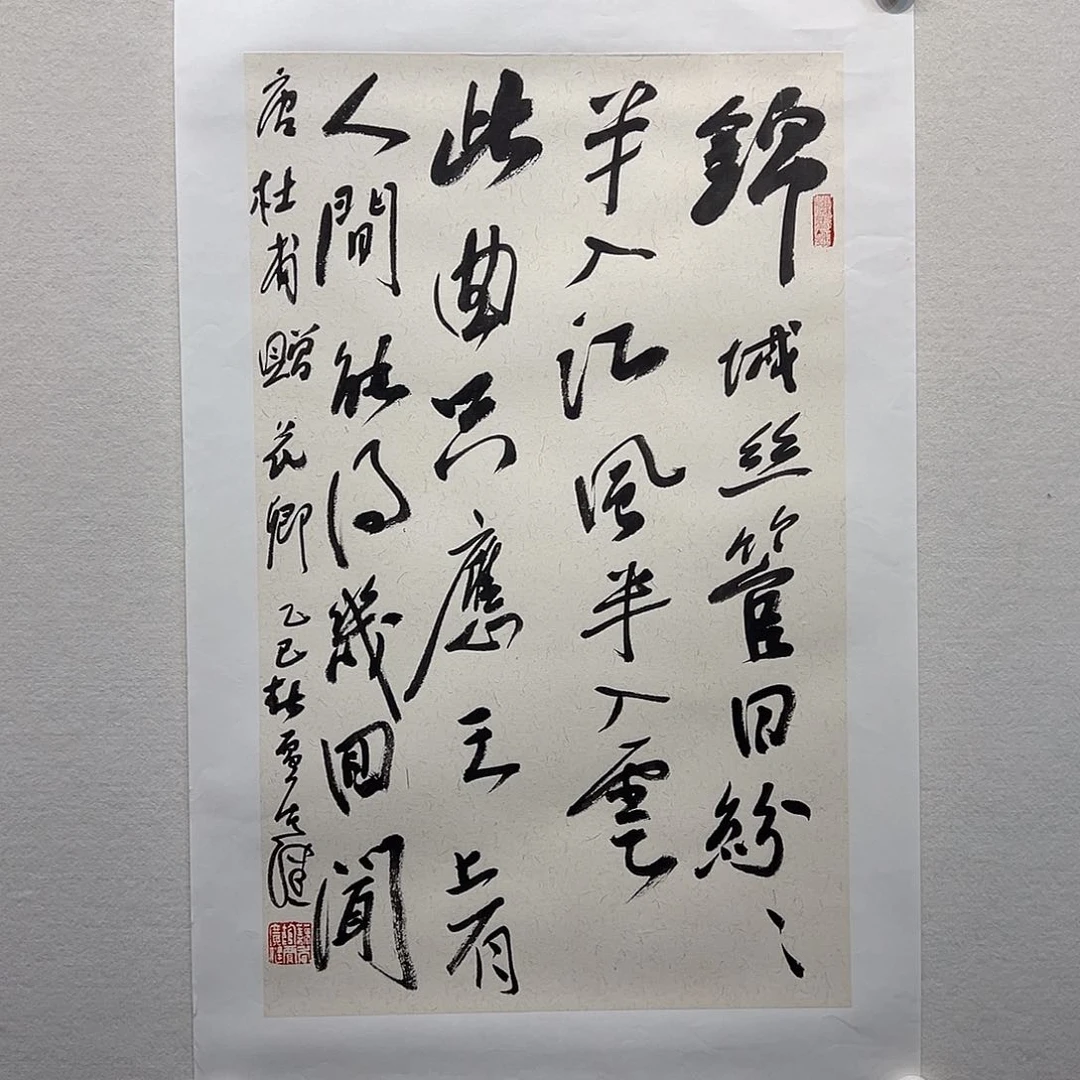 錦城丝管日紛〻
半入江風半入雲
此曲只應天上有
人間能得幾回聞
唐杜甫贈花卿 乙巳秋